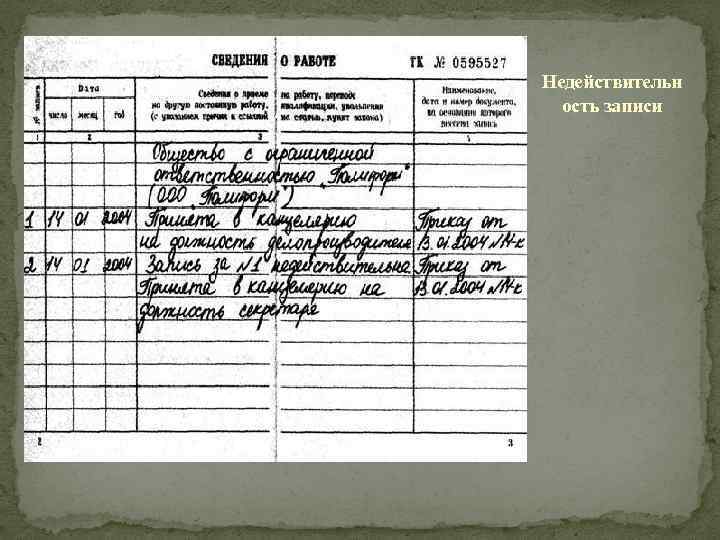 СВЕДЕНИЯ О РАБОТЕ ТК № 0595527
№ записи
Дата
число месяц год
Сведения о приеме на работу, переводе
на другую постоянную работу, квалификации, увольнении
(с указанием причин и ссылкой на статью, пункт закона)
Наименование,
дата и номер документа,
на основании которого
внесена запись
1 2 3 4
Общество с ограниченной
ответственностью „Полиформ"
(ООО „Полиформ")
1 14 01 2004 Принята в канцелярию Приказ от
на должность делопроизводителя 13.01.2004 №1-к
2 14 01 2004 Запись за №1 недействительна Приказ от
Принята в канцелярию на 13.01.2004 №1-к
должность секретаря
2 3
Недействительн
ость записи